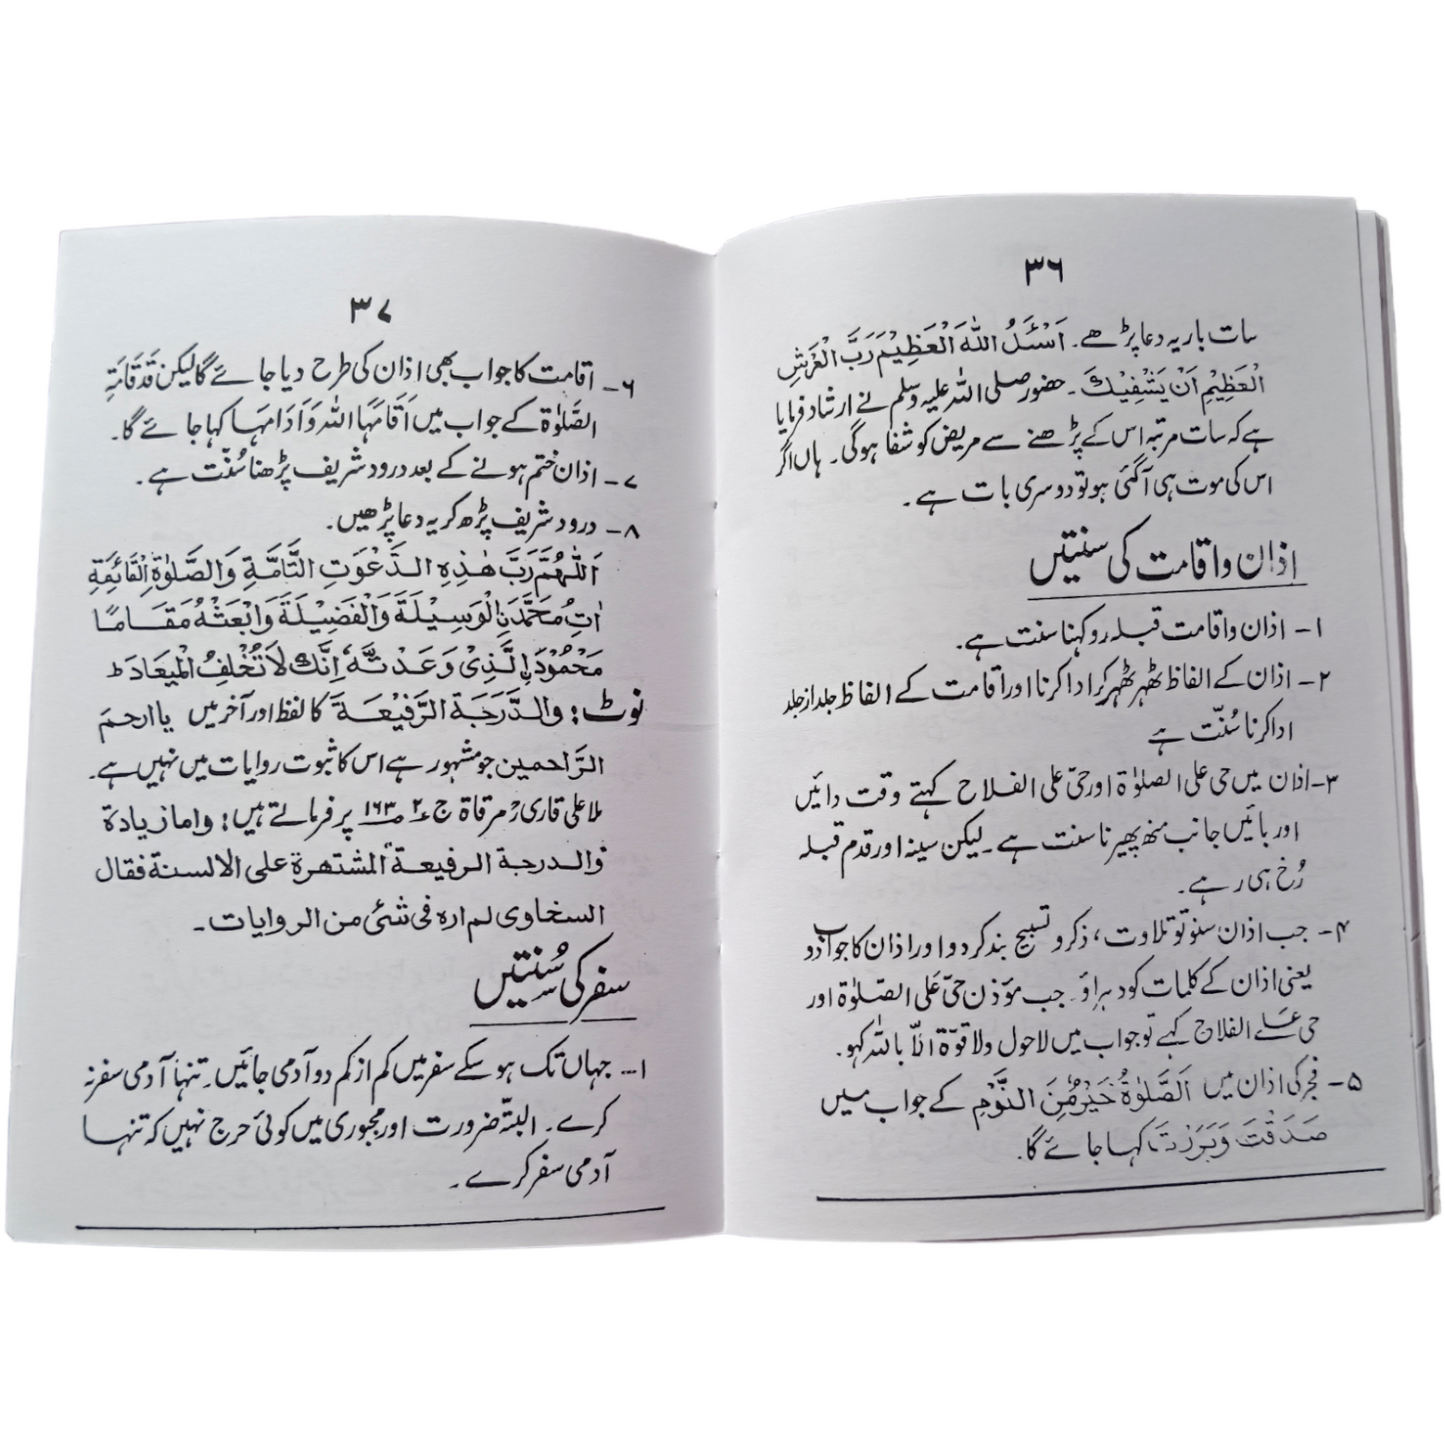 ۳۶
سات بار یہ دعا پڑھے۔ اَسْئَلُ اللّٰہَ الْعَظِیْمَ رَبَّ الْعَرْشِ
الْعَظِیْمِ اَنْ یَشْفِیْكَ۔ حضور صلی اللہ علیہ وسلم نے ارشاد فرمایا
ہے کہ سات مرتبہ اس کے پڑھنے سے مریض کو شفا ہوگی۔ ہاں اگر
اس کی موت ہی آگئی ہو تو دوسری بات ہے۔
اذان و اقامت کی سنتیں
۱– اذان و اقامت قبلہ رو کہنا سنت ہے۔
۲– اذان کے الفاظ ٹھہر ٹھہر کر ادا کرنا اور اقامت کے الفاظ جلد از جلد
ادا کرنا سُنّت ہے
۳– اذان میں حی علی الصلوٰۃ اور حیّ علی الفلاح کہتے وقت دائیں
اور بائیں جانب منھ پھیرنا سنت ہے۔ لیکن سینہ اور قدم قبلہ
رُخ ہی رہے۔
۴– جب اذان سنو تو تلاوت، ذکر و تسبیح بند کر دو اور اذان کا جواب دو
یعنی اذان کے کلمات کو دہراؤ۔ جب مؤذن حیّ عَلی الصّلوٰۃ اور
حی عَلے الفلاح کہے تو جواب میں لاحول ولا قوّۃ الّا باللّٰہ کہو۔
۵– فجر کی اذان میں اَلصَّلٰوۃُ خَیْرٌ مِّنَ النَّوْمِ کے جواب میں
صَدَقْتَ وَبَرَرْتَ کہا جائے گا۔
۳۷
۶– اقامت کا جواب بھی اذان کی طرح دیا جائے گا لیکن قَدْ قَامَتِ
الصَّلوٰۃ کے جواب میں اَقَامَہَا اللّٰہُ وَاَدَامَہَا کہا جائے گا۔
۷– اذان ختم ہونے کے بعد درود شریف پڑھنا سُنّت ہے۔
۸– درود شریف پڑھ کر یہ دعا پڑھیں۔
اَللّٰہُمَّ رَبَّ ھٰذِہِ الدَّعْوَتِ التَّامَّۃِ وَالصَّلٰوۃِ الْقَائِمَۃِ
اٰتِ مُحَمَّدَنِ الْوَسِیْلَۃَ وَالْفَضِیْلَۃَ وَابْعَثْہُ مَقَامًا
مَحْمُوْدَنِ الَّذِیْ وَعَدْتَّہٗ اِنَّكَ لَا تُخْلِفُ الْمِیْعَادَ ط
نوٹ: والدَّرَجَۃَ الرَّفِیْعَۃَ کا لفظ اور آخر میں یا ارحمَ
الرَّاحمین جو مشہور ہے اس کا ثبوت روایات میں نہیں ہے۔
ملا علی قاریؒ مرقاۃ ج ۲ ص ۱۶۳ پر فرماتے ہیں: واما زیادۃ
والدرجۃ الرفیعۃ المشتھرۃ علی الالسنۃ فقال
السخاوی لم ارہ فی شئی من الروایات۔
سفر کی سُنتیں
۱– جہاں تک ہو سکے سفر میں کم از کم دو آدمی جائیں۔ تنہا آدمی سفر نہ
کرے۔ البتّہ ضرورت اور مجبوری میں کوئی حرج نہیں کہ تنہا
آدمی سفر کرے۔